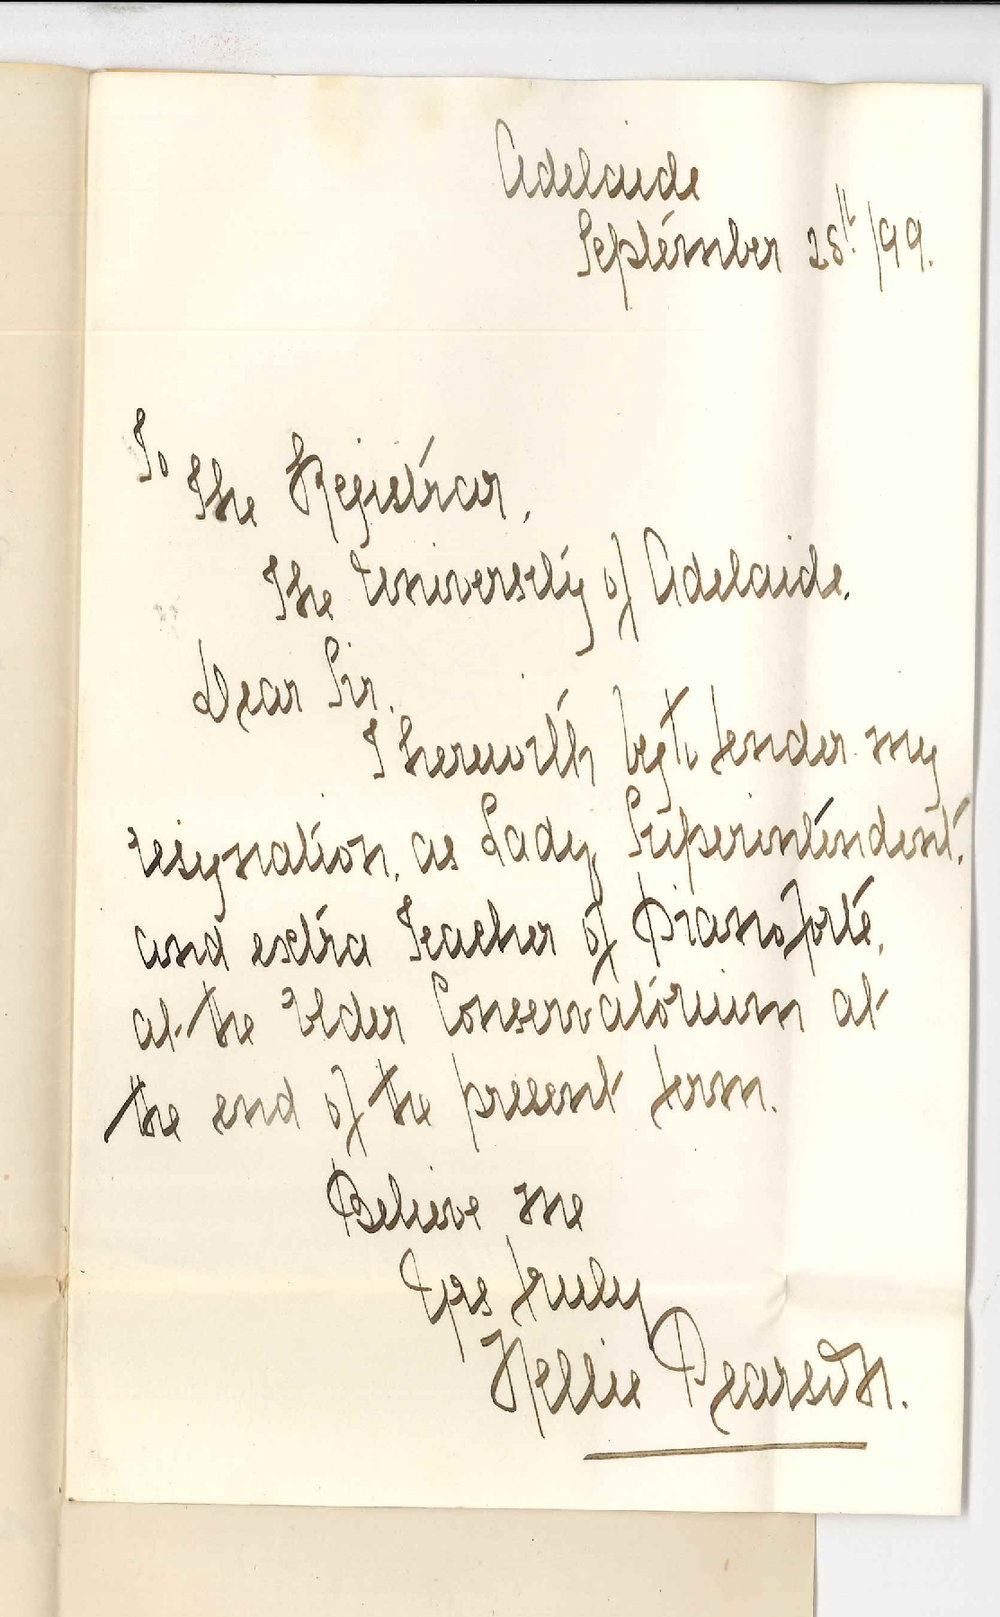 Adelaide
September 28th /99.
To
The Registrar,
The University of Adelaide.
Dear Sir.
I herewith beg to tender my
resignation, as Lady Superintendent,
and extra Teacher of Pianoforte,
at the Elder Conservatorium at
the end of the present term.
Believe me
Yrs truly
Nellie Pearson.